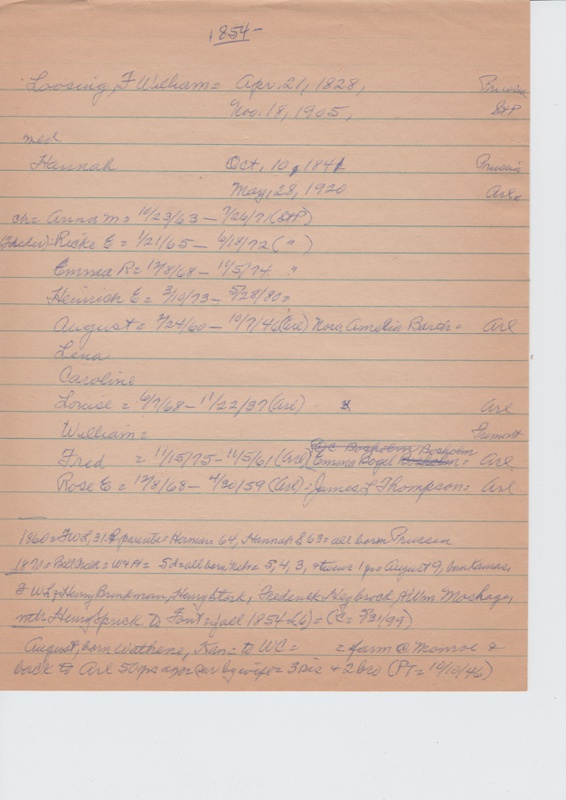 1854-
Loosing, F William = Apr. 21, 1828, Prussia
Nov. 18, 1905, StP
med
Hannah Oct, 10, 1841 Prussia
May, 28, 1920 Arl.
ch = Anna M = 10/23/63 - 7/26/71 (StP)
Rieke E = 1/21/65 - 6/18/72 ( " )
Emma R = 12/8/68 - 11/5/74 "
Heinrich E = 3/10/73 - 5/28/80 =
August = 7/24/60 - 10/7/46 (Arl) Nora Amelia Barth = Arl
Lena
Caroline
Louise = 6/7/68 - 11/22/37 (Arl) Arl
William = Fremont
Fred = 11/15/75 - 11/5/61 (Arl) Emma = Arl
Rose E = 12/8/68 - 4/30/59 (Arl) = James L Thompson = Arl
1860 = FWL, 31. & parents = Herman 64, Hannah L 63 = all born Prussia
1870 = Bell Creek = W + H = 5 d = all born Neb = 5, 4, 3, + twins 1 yr = August 9, born Kansas
F WL, Henry Brinkmann, Henry Stork, Frederick Heybrock, Wm Moshage,
Henry Spriek to Font = all 1854 = (E = 7/31/99)
August, born Wathena, Kan = to WC = = farm @ Monroe &
back to Arl 50 yrs ago = sur by wife = 3 sis + 2 bro (PT = 10/10/46)